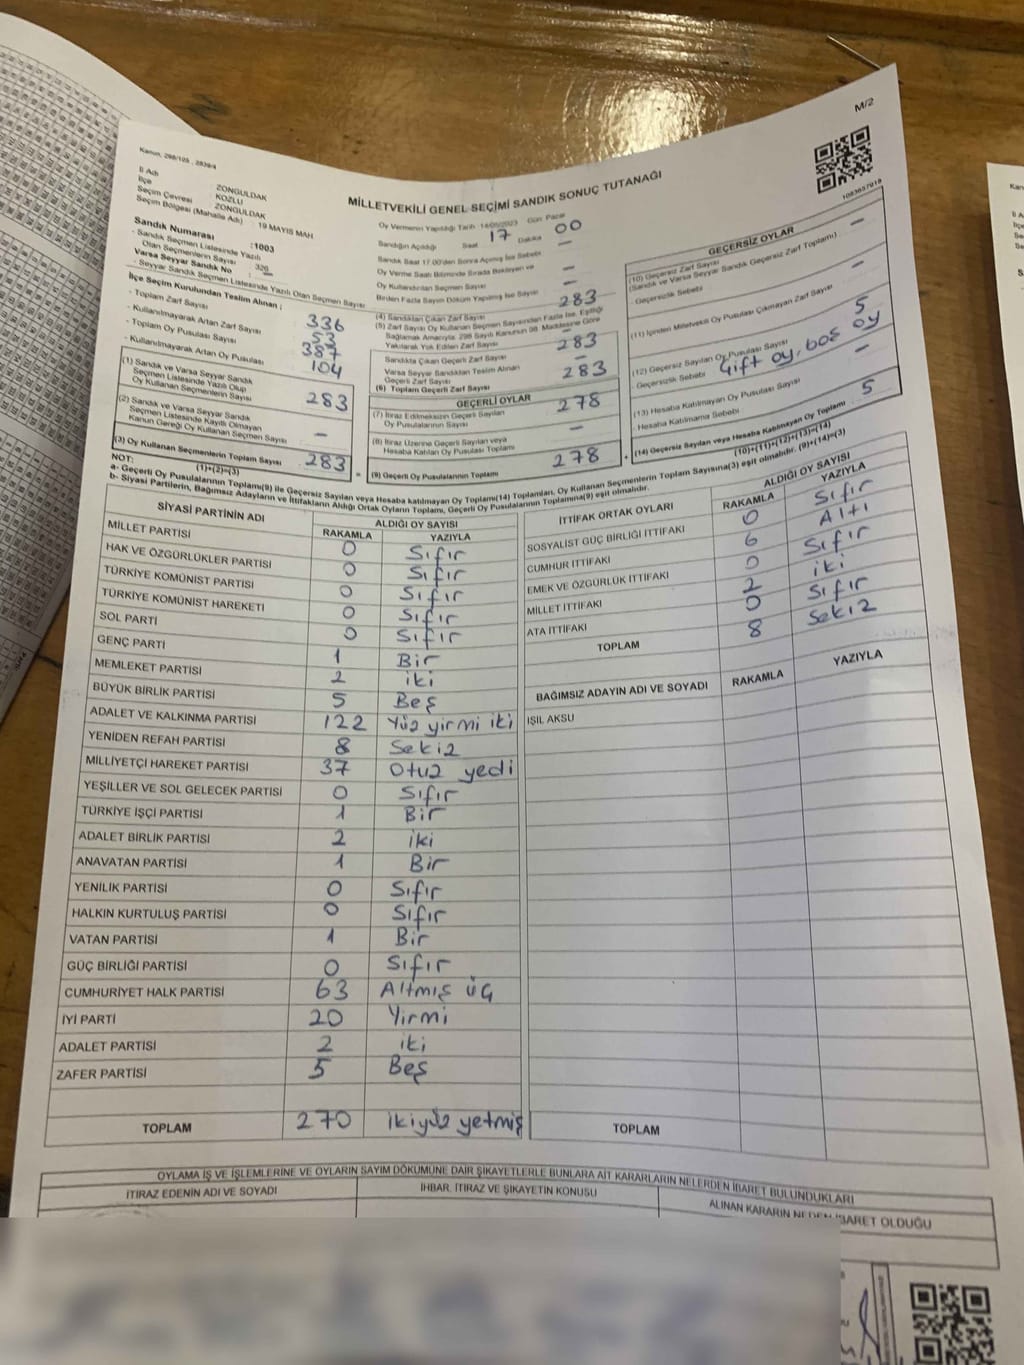 M/2
Kanun, 298/105 , 2839/4
İl Adı : ZONGULDAK
İlçe : KOZLU
Seçim Çevresi : ZONGULDAK
Seçim Bölgesi (Mahalle Adı) : 19 MAYIS MAH
MİLLETVEKİLİ GENEL SEÇİMİ SANDIK SONUÇ TUTANAĞI
1083637919
Sandık Numarası :1003
- Sandık Seçmen Listesinde Yazılı Olan Seçmenlerin Sayısı : 320
Varsa Seyyar Sandık No : —
- Seyyar Sandık Seçmen Listesinde Yazılı Olan Seçmen Sayısı
Oy Vermenin Yapıldığı Tarih 14/05/2023 Gün Pazar
Sandığın Açıldığı Saat 17 Dakika 00
Sandık Saat 17:00'den Sonra Açılmış İse Sebebi —
Oy Verme Saati Bitiminde Sırada Bekleyen ve
Oy Kullandırılan Seçmen Sayısı —
Birden Fazla Sayım Döküm Yapılmış İse Sayısı —
İlçe Seçim Kurulundan Teslim Alınan ;
- Toplam Zarf Sayısı 336
- Kullanılmayarak Artan Zarf Sayısı 53
- Toplam Oy Pusulası Sayısı 387
- Kullanılmayarak Artan Oy Pusulası 104
(1) Sandık ve Varsa Seyyar Sandık
Seçmen Listesinde Yazılı Olup
Oy Kullanan Seçmenlerin Sayısı 283
(2) Sandık ve Varsa Seyyar Sandık
Seçmen Listesinde Kayıtlı Olmayan
Kanun Gereği Oy Kullanan Seçmen Sayısı —
(3) Oy Kullanan Seçmenlerin Toplam Sayısı 283
(1)+(2)=(3)
(4) Sandıktan Çıkan Zarf Sayısı 283
(5) Zarf Sayısı Oy Kullanan Seçmen Sayısından Fazla İse, Eşitliği
Sağlamak Amacıyla; 298 Sayılı Kanunun 98. Maddesine Göre
Yakılarak Yok Edilen Zarf Sayısı —
Sandıkta Çıkan Geçerli Zarf Sayısı 283
Varsa Seyyar Sandıktan Teslim Alınan
Geçerli Zarf Sayısı —
(6) Toplam Geçerli Zarf Sayısı 283
GEÇERLİ OYLAR
(7) İtiraz Edilmeksizin Geçerli Sayılan
Oy Pusulası Sayısı 278
(8) İtiraz Üzerine Geçerli Sayılan veya
Hesaba Katılan Oy Pusulası Toplamı —
(9) Geçerli Oy Pusulalarının Toplamı 278
GEÇERSİZ OYLAR
(10) Geçersiz Zarf Sayısı
(Sandık ve Varsa Seyyar Sandık Geçersiz Zarf Toplamı) —
- Geçersizlik Sebebi : —
(11) İçinden Milletvekili Oy Pusulası Çıkmayan Zarf Sayısı —
(12) Geçersiz Sayılan Oy Pusulası Sayısı 5
- Geçersizlik Sebebi Çift oy, boş oy
(13) Hesaba Katılmayan Oy Pusulası Sayısı —
- Hesaba Katılmama Sebebi
(14) Geçersiz Sayılan veya Hesaba Katılmayan Oy Toplamı 5
(10)+(11)+(12)+(13)=(14)
NOT:
a- Geçerli Oy Pusulalarının Toplamı(9) ile Geçersiz Sayılan veya Hesaba katılmayan Oy Toplamı(14) Toplamları, Oy Kullanan Seçmenlerin Toplam Sayısına(3) eşit olmalıdır. (9)+(14)=(3)
b- Siyasi Partilerin, Bağımsız Adayların ve İttifakların Aldığı Ortak Oyların Toplamı, Geçerli Oy Pusulalarının Toplamına(9) eşit olmalıdır.
SİYASİ PARTİNİN ADI ALDIĞI OY SAYISI
RAKAMLA YAZIYLA
MİLLET PARTİSİ 0 Sıfır
HAK VE ÖZGÜRLÜKLER PARTİSİ 0 Sıfır
TÜRKİYE KOMÜNİST PARTİSİ 0 Sıfır
TÜRKİYE KOMÜNİST HAREKETİ 0 Sıfır
SOL PARTİ 0 Sıfır
GENÇ PARTİ 1 Bir
MEMLEKET PARTİSİ 2 iki
BÜYÜK BİRLİK PARTİSİ 5 Beş
ADALET VE KALKINMA PARTİSİ 122 Yüz yirmi iki
YENİDEN REFAH PARTİSİ 8 Sekiz
MİLLİYETÇİ HAREKET PARTİSİ 37 Otuz yedi
YEŞİLLER VE SOL GELECEK PARTİSİ 0 Sıfır
TÜRKİYE İŞÇİ PARTİSİ 1 Bir
ADALET BİRLİK PARTİSİ 2 iki
ANAVATAN PARTİSİ 1 Bir
YENİLİK PARTİSİ 0 Sıfır
HALKIN KURTULUŞ PARTİSİ 0 Sıfır
VATAN PARTİSİ 1 Bir
GÜÇ BİRLİĞİ PARTİSİ 0 Sıfır
CUMHURİYET HALK PARTİSİ 63 Altmış üç
İYİ PARTİ 20 Yirmi
ADALET PARTİSİ 2 iki
ZAFER PARTİSİ 5 Beş
TOPLAM 270 ikiyüz yetmiş
İTTİFAK ORTAK OYLARI ALDIĞI OY SAYISI
RAKAMLA YAZIYLA
SOSYALİST GÜÇ BİRLİĞİ İTTİFAKI 0 Sıfır
CUMHUR İTTİFAKI 6 Altı
EMEK VE ÖZGÜRLÜK İTTİFAKI 0 Sıfır
MİLLET İTTİFAKI 2 iki
ATA İTTİFAKI 0 Sıfır
TOPLAM 8 Sekiz
BAĞIMSIZ ADAYIN ADI VE SOYADI RAKAMLA YAZIYLA
IŞIL AKSU
TOPLAM
OYLAMA İŞ VE İŞLEMLERİNE VE OYLARIN SAYIM DÖKÜMÜNE DAİR ŞİKAYETLERLE BUNLARA AİT KARARLARIN NELERDEN İBARET BULUNDUKLARI
İTİRAZ EDENİN ADI VE SOYADI
İHBAR, İTİRAZ VE ŞİKAYETİN KONUSU
ALINAN KARARIN NEDEN İBARET OLDUĞU